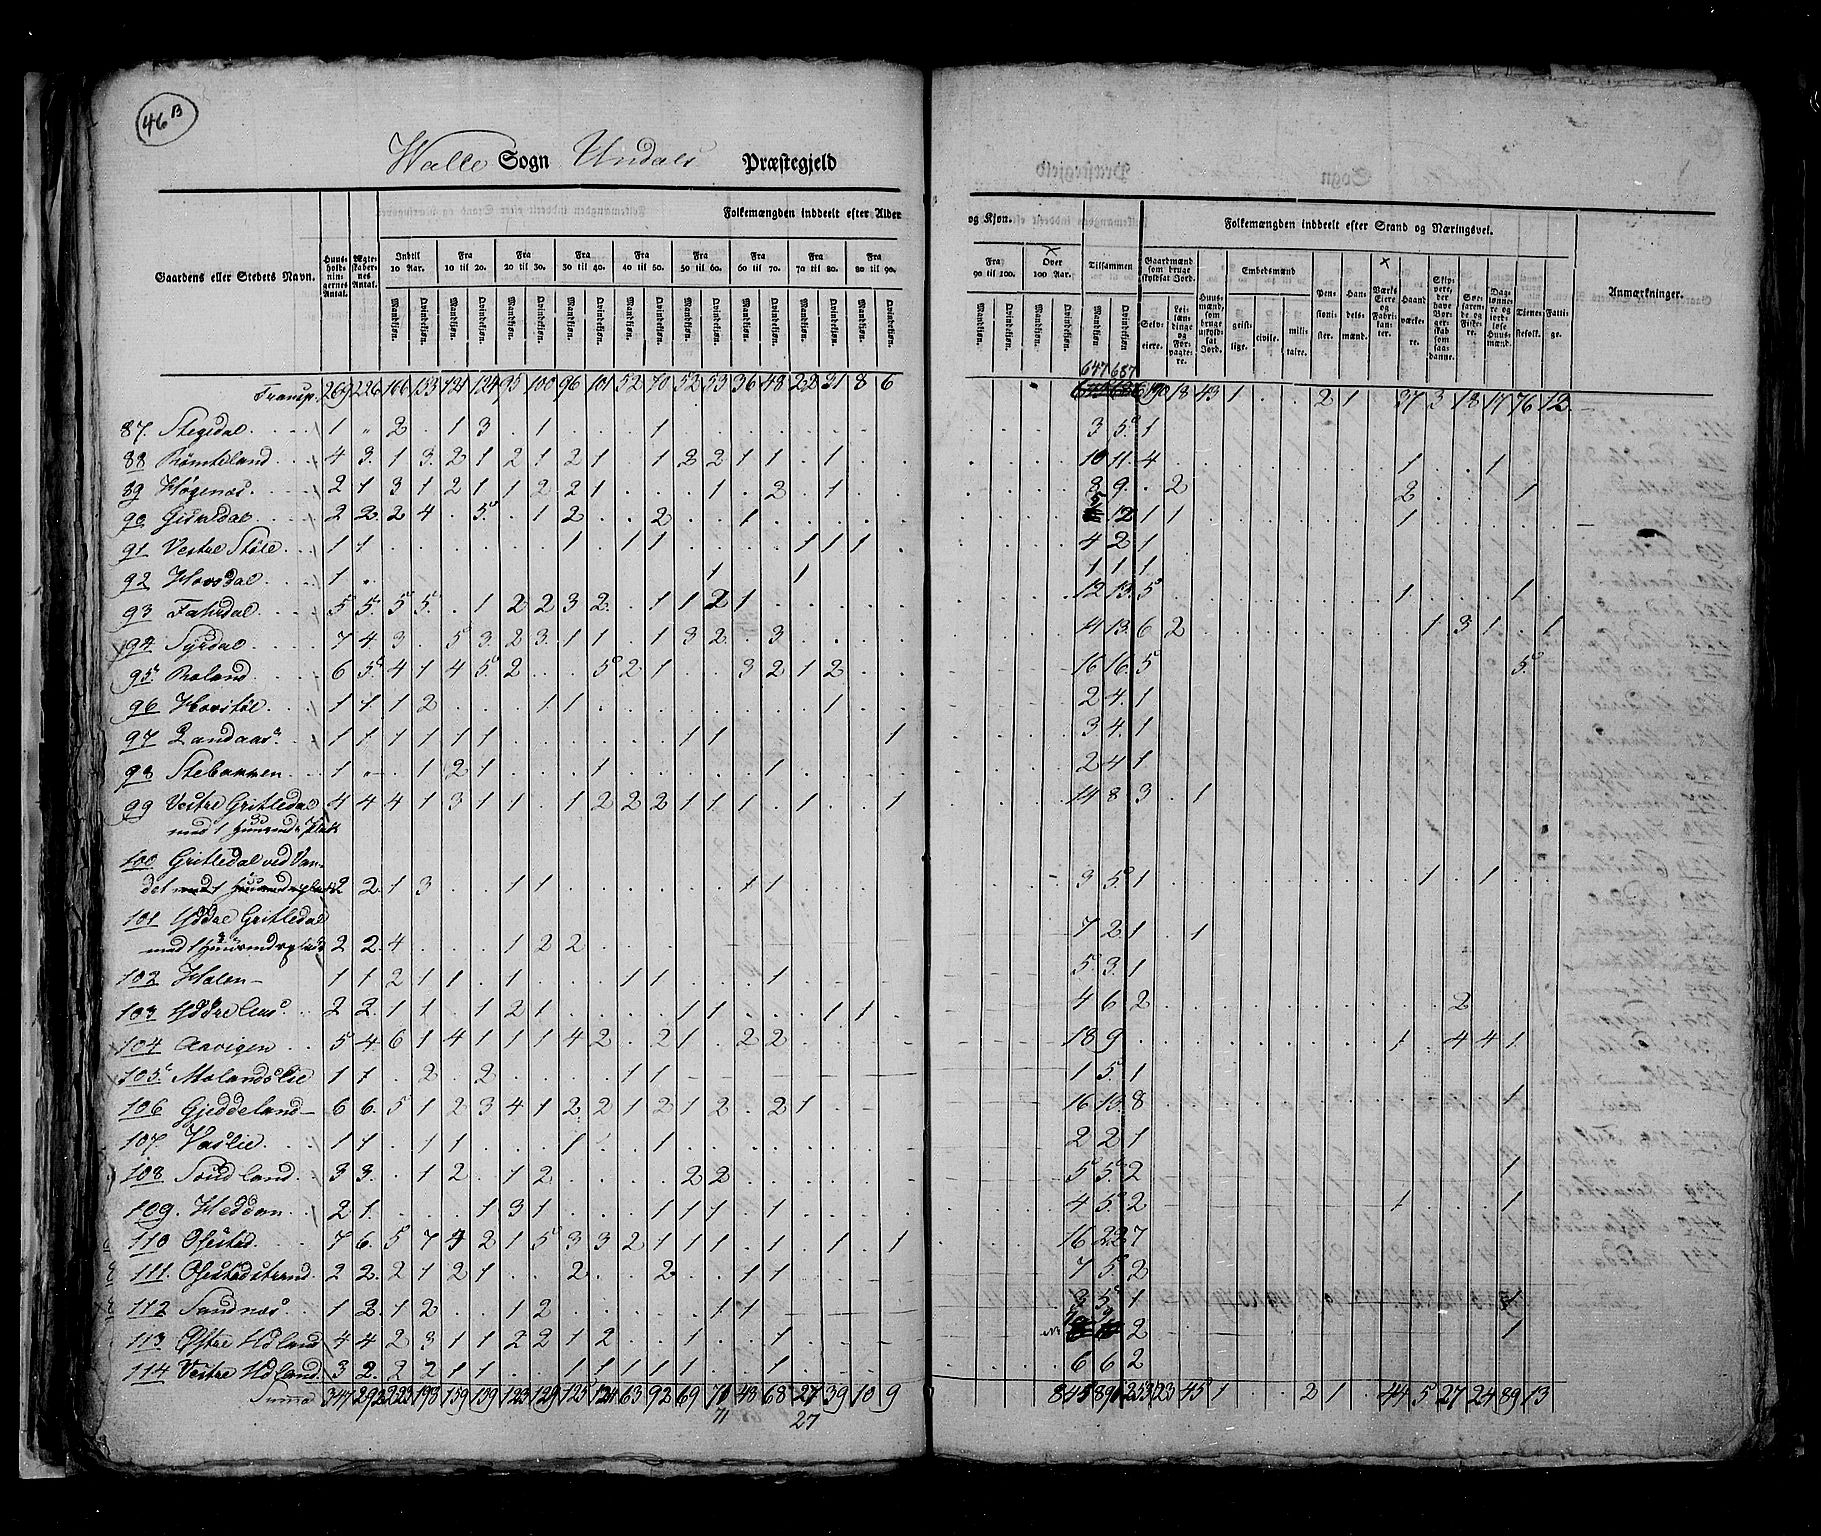 46 B
Walle Sogn Undals Præstegjeld
Gaardens eller Stedets Navn.
Huusholdningernes Antal.
Ægteskabernes Antal.
Folkemængden inddeelt efter Alder og Kjøn.
Indtil 10 Aar. Fra 10 til 20. Fra 20 til 30. Fra 30 til 40. Fra 40 til 50. Fra 50 til 60. Fra 60 til 70. Fra 70 til 80. Fra 80 til 90. Fra 90 til 100. Over 100 Aar. Tilsammen
Mandkjøn. Qvindekjøn.
Folkemængden inddeelt efter Stand og Næringsvei.
Gaardmænd som bruge skyldsat Jord.
Selveiere. Leilændinge og Forpagtere.
Huusmænd, som bruge uskyldsat Jord.
Embedsmænd
geistlige. civile. militaire.
Pensionister. Handelsmænd. Værks Eiere og Fabrikanter. Haandværkere. Skippere, der have Borgerskab som saadanne. Søefarende og Fiskere. Daglønnere og jordløse Huusmænd. Tjenestefolk. Fattige.
Anmærkninger.
647 687
Transp. 269 226 166 153 121 124 95 100 96 101 52 70 52 53 36 48 22 31 8 6 190 18 43 1 . . 2 1 37 3 18 17 76 12
87. Stegdal 1 " 2 . 1 3 . 1 . . . 1 3 5 1
88 Römteland 4 3 1 3 2 1 2 1 2 1 . 1 2 2 1 1 . 1 10 11 4 1 1
89 Högenæs 2 1 3 1 2 1 1 2 2 1 . . . 1 . 2 . 1 8 9 . 2 2 1
90 Gismdal 2 2 2 4 . 5 . 1 2 . . 2 . . 1 5 12 1 1 1
91 Vestre Støle 1 1 1 . 1 1 1 1 1 4 2 1
92 Hovsdal 1 " 1 1 1 1 1
93 Fahrdal 5 5 5 5 . 1 2 2 3 2 . 1 1 2 1 12 13 5 1 1
94 Syrdal 7 4 3 . 5 3 2 3 1 1 . 1 3 2 . 3 14 13 6 2 1 3 1 1
95 Roland 6 5 4 1 4 5 2 . . 5 2 1 . . 3 2 1 2 16 16 5 5
96 Hovstøl 1 1 1 2 . . . 1 1 1 2 4 1
97 Landaas 1 1 1 1 1 1 1 1 1 3 4 1
98 Stebakken 1 " . 1 2 1 . . . 1 1 2 4 1
99 Vestre Gritledal 4 4 4 1 3 1 1 . 1 2 2 2 1 1 1 . 1 . . 1 14 8 3 . 1
med 1 Huusmds Plads
100 Gritledal ved Van-
det med 1 Huusmdsplads 2 2 1 3 . . 1 1 1 1 3 5 1 1 1
101 Yddre Gritledal
med 1 Huusmdsplads 2 2 4 . . . 1 2 2 7 2 1 . 1
102 Holen 1 1 2 1 1 . 1 . . . 1 1 1 5 3 1
103 Yddre Aas 2 2 1 1 . 1 2 1 1 1 1 1 4 6 2 2
104 Aavigen 5 4 6 1 4 1 1 1 4 2 . 2 1 . 2 2 18 9 1 . 4 4 1
105 Molandslie 1 1 . 2 . 2 . . . . 1 1 1 5 1
106 Gjeddeland 6 6 5 1 2 3 4 1 2 2 1 2 1 2 . 2 1 16 13 8 1
107. Vaslie 1 1 . 1 1 . . . 1 . . 1 2 2 1
108 Søndland 3 3 . 1 2 . 1 2 . . . . 2 2 5 5 2 1
109. Heddan 2 1 . . . 1 3 1 . . . 1 1 1 . 1 4 5 2 1 1
110 Ofsted 7 6 5 7 4 2 1 5 3 3 2 1 1 1 . 1 . 1 . 1 16 22 7
111 Ofstedstrand 2 2 2 1 2 1 . . 2 . . 2 . . 1 1 7 5 2
112 Sandnæs 1 2 1 2 . . 1 2 1 1 3 5 1 1
113 Østre Udland 4 4 2 3 1 1 2 2 1 2 . . 1 . . 1 7 9 2 1
114 Vestre Udland 3 2 2 2 1 1 . . 1 1 1 1 1 . . 1 6 6 2
Summa 347 292 223 198 159 139 123 129 125 124 63 92 69 71 43 68 27 39 10 9 845 896 253 23 45 1 . . 2 1 44 5 27 24 89 13
71 27